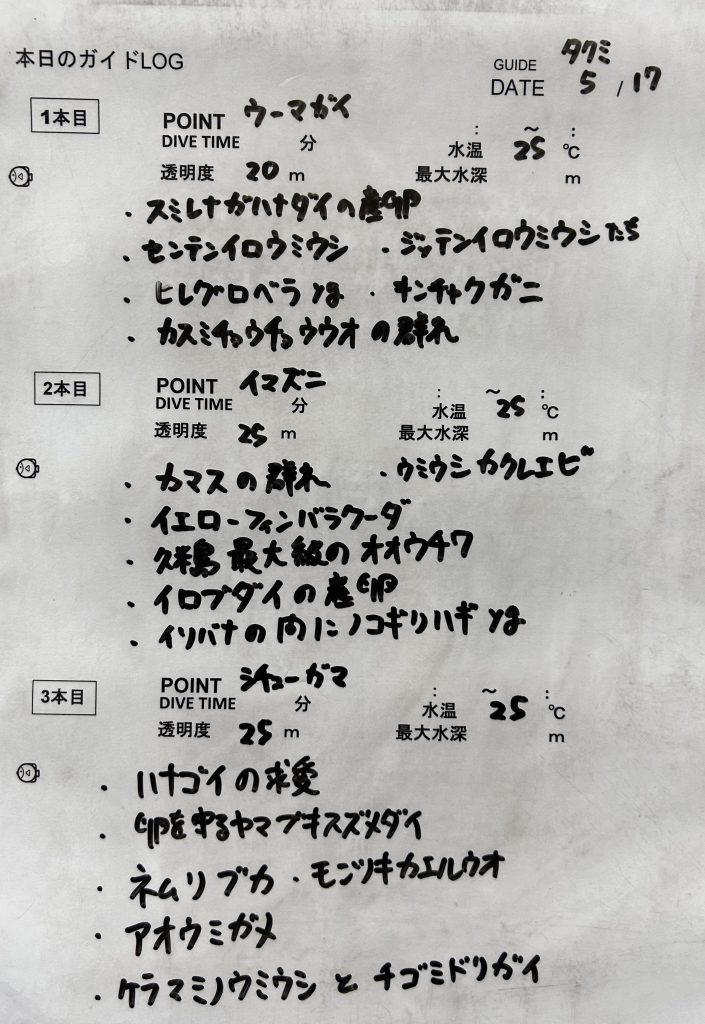 本日のガイドLOG
GUIDE タクミ
DATE 5 / 17
1本目
POINT ウーマガイ
DIVE TIME 分 : ～ :
水温 25 ℃
透明度 20 m 最大水深 m
・スミレナガハナダイの産卵
・センテンイロウミウシ ・ジッテンイロウミウシたち
・ヒレグロベラ yg ・キンチャクガニ
・カスミチョウチョウウオの群れ
2本目
POINT イマズニ
DIVE TIME 分 : ～ :
水温 25 ℃
透明度 25 m 最大水深 m
・カマスの群れ ・ウミウシカクレエビ
・イエローフィンバラクーダ
・久米島最大級のオオウチワ
・イロブダイの産卵
・イソバナの内にノコギリハギ yg
3本目
POINT シチューガマ
DIVE TIME 分 : ～ :
水温 25 ℃
透明度 25 m 最大水深 m
・ハナゴイの求愛
・卵を守るヤマブキスズメダイ
・ネムリブカ ・モンツキカエルウオ
・アオウミガメ
・ケラマミノウミウシとチゴミドリガイ